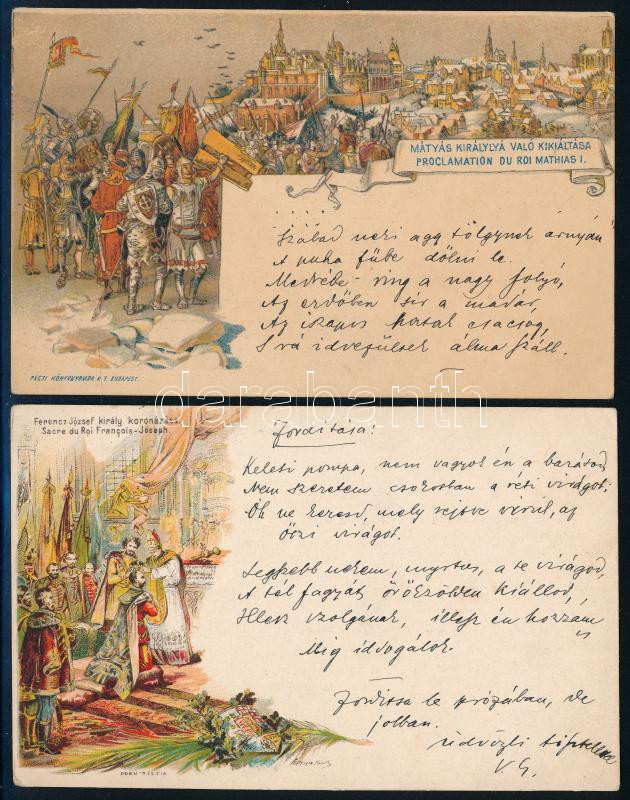 MÁTYÁS KIRÁLYLYÁ VALÓ KIKIÁLTÁSA
PROCLAMATION DU ROI MATHIAS I.
....
Szabad neki agg tölgynek árnyán
A puha fübe dölni le.
Medrébe ring a nagy folyó,
Az erdőben sír a madár,
Az iszapos források csacsog,
S rá idvezültek álma száll.
PESTI KÖNYVNYOMDA R. T. BUDAPEST.
darabanth
Ferencz József király koronázása
Sacre du Roi François-Joseph
Fordítása:
Keleti pompa, nem vagyok én a barátod
Nem szeretem csokorban a réti virágot.
Óh ne keresd, mely rejtve virúl, az
őszi virágot.
Legszebb nekem, myrtus, a te virágod,
A tél fagyát örökzölden kiállod,
Illesz szolgának, illesz én hozzám is
Míg idvogálok.
Fordítsa le prózában, de
jobban.
üdvözli tisztelője
V. G.